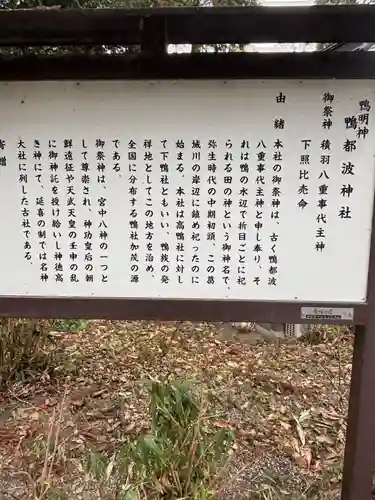 鴨明神
鴨都波神社
御祭神 積羽八重事代主神
下照比売命
由緒 本社の御祭神は、古く鴨都波
八重事代主神と申し奉り、そ
れは鴨の水辺で折目ごとに祀
られる田の神という御神名で、
弥生時代の中期初頭、この葛
城川の岸辺に鎮め祀ったのに
始まる。本社は高鴨社に対し
て下鴨社ともいい、鴨族の発
祥地としてこの地方を治め、
全国に分布する鴨社加茂の源
である。
御祭神は、宮中八神の一つと
して尊崇され、神功皇后の朝
鮮遠征や天武天皇の壬申の乱
に御神託を授け給いし神徳高
き神にて、延喜の制では名神
大社に列した古社である。
寄贈